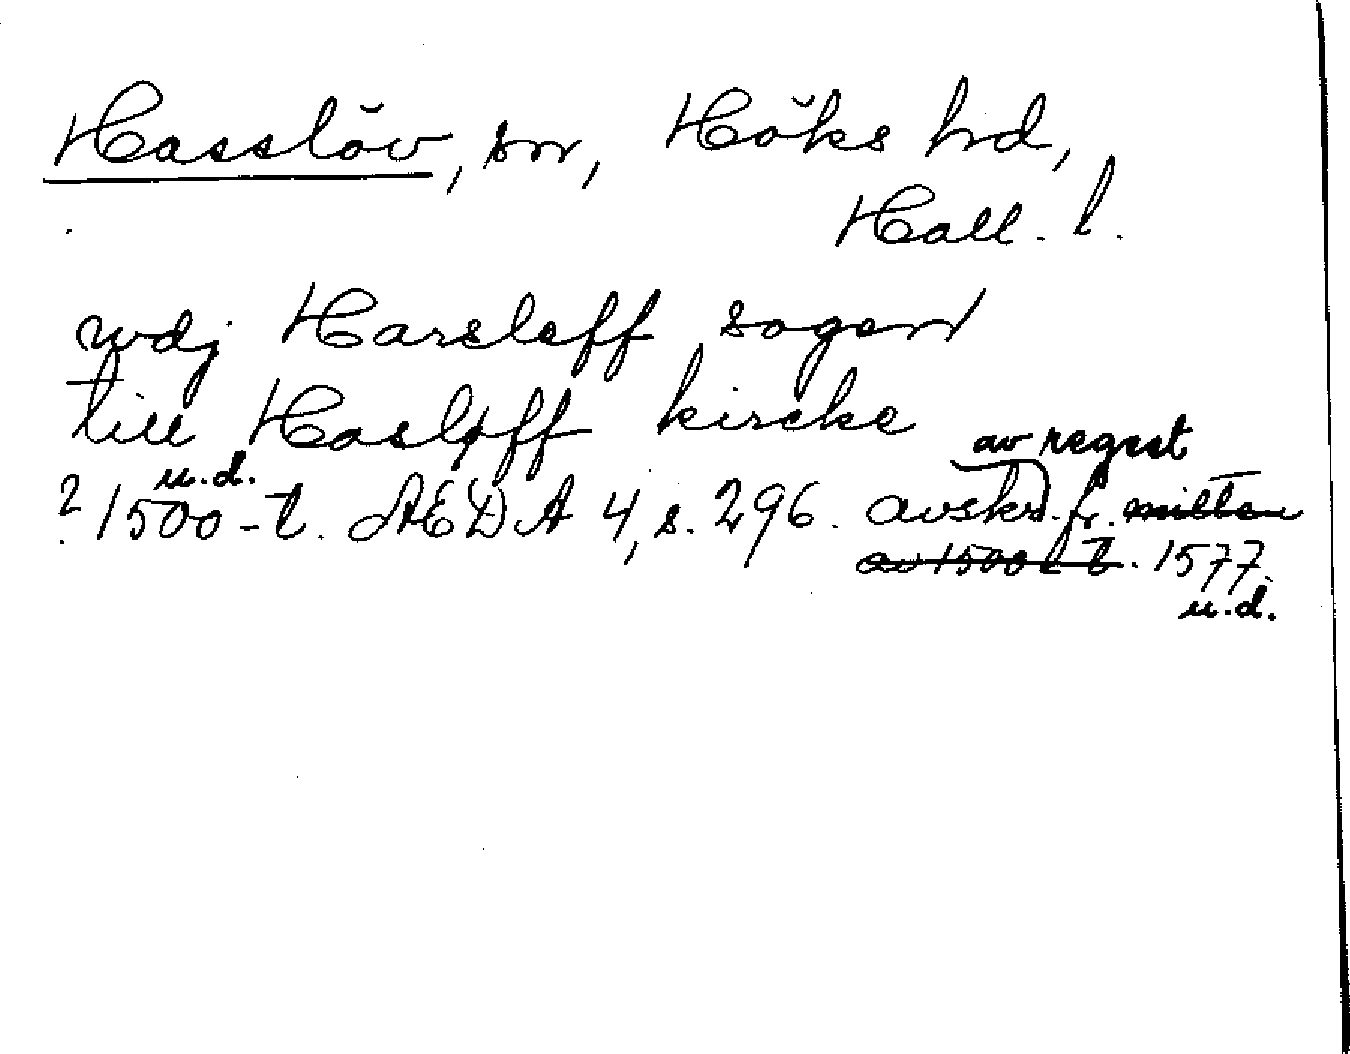 Hasslöv, sn, Höks hd,
Hall. l.
wdj Harsleff sogen
till Hasløff kircke
av regest
u.d.
? 1500-t. AEDA 4, s. 296. avskr. fr. mitten
av 1500-t. 1577
u.d.